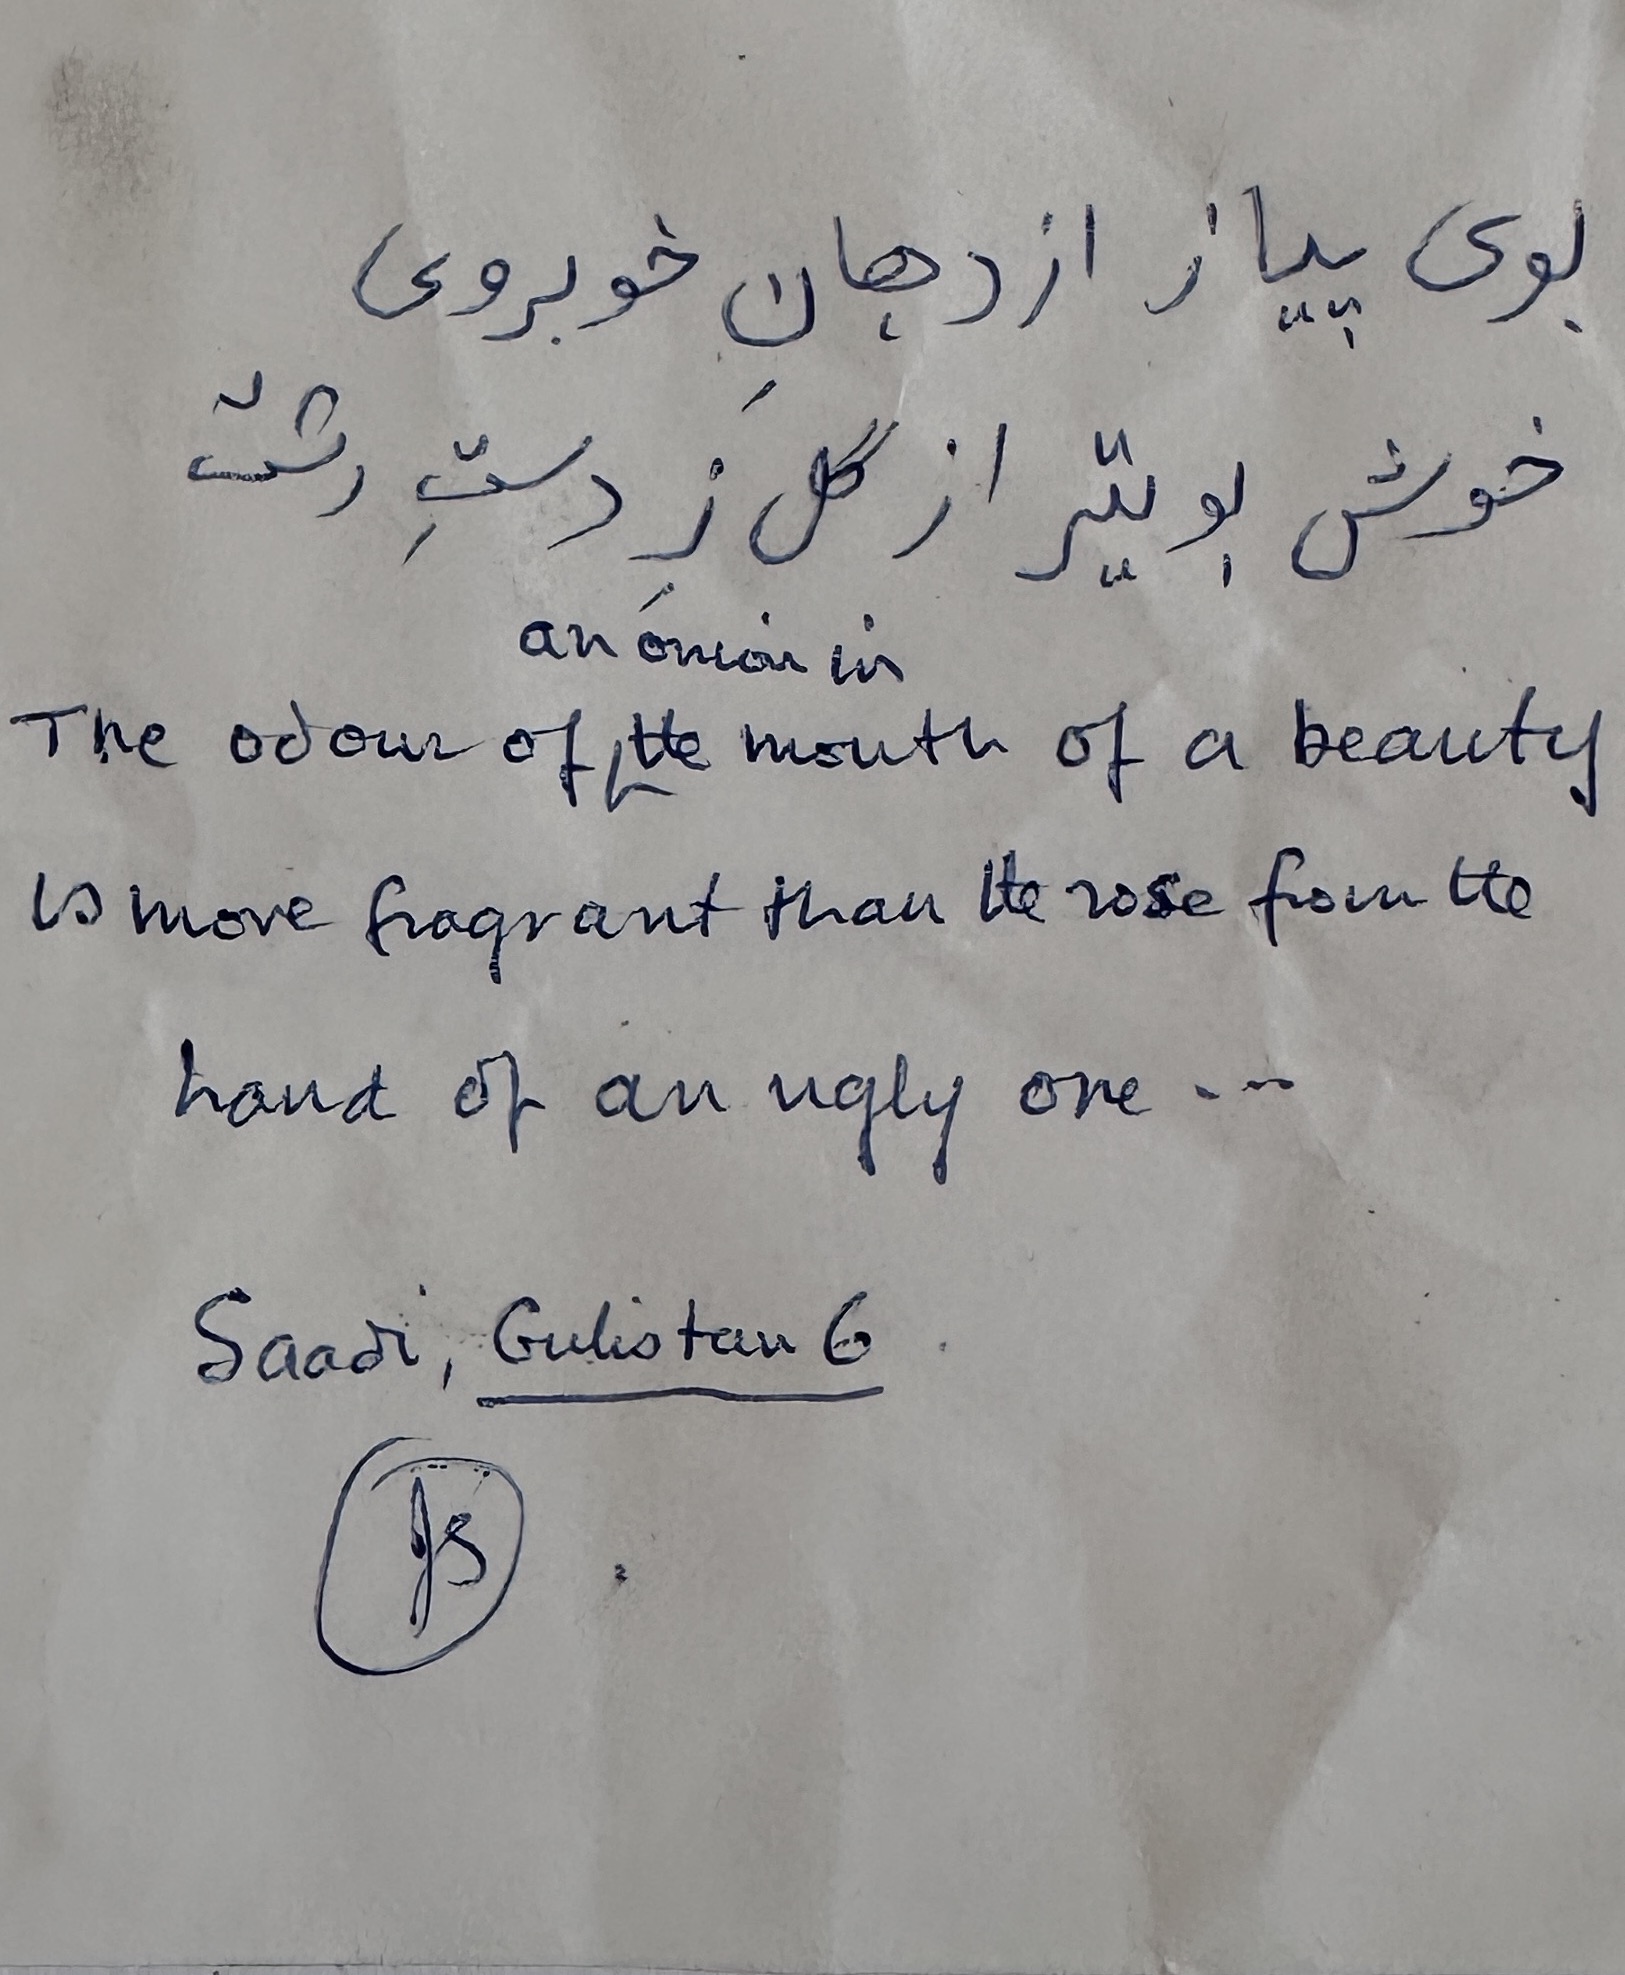 بوی پیاز از دهانِ خوبروی
خوش بویتّر از گل زِ دستِ رشت
an onion in
The odour of the mouth of a beauty
is more fragrant than the rose from the
hand of an ugly one ...
Saadi, Gulistan 6